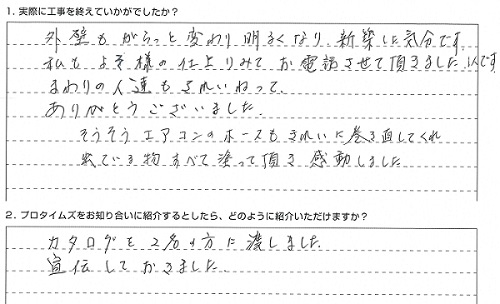 1. 実際に工事を終えていかがでしたか？
外壁もがらっと変わり明るくなり、新築した気分です。
私もよそ様の仕上りみてお電話させて頂きました。以下です
まわりの人達もきれいねって、
ありがとうございました。
そうそうエアコンのホースもきれいに巻き直してくれ
出ている物すべて塗って頂き感動しました
2. プロタイムズをお知り合いに紹介するとしたら、どのように紹介いただけますか？
カタログを2名の方に渡しました。
宣伝しておきました。